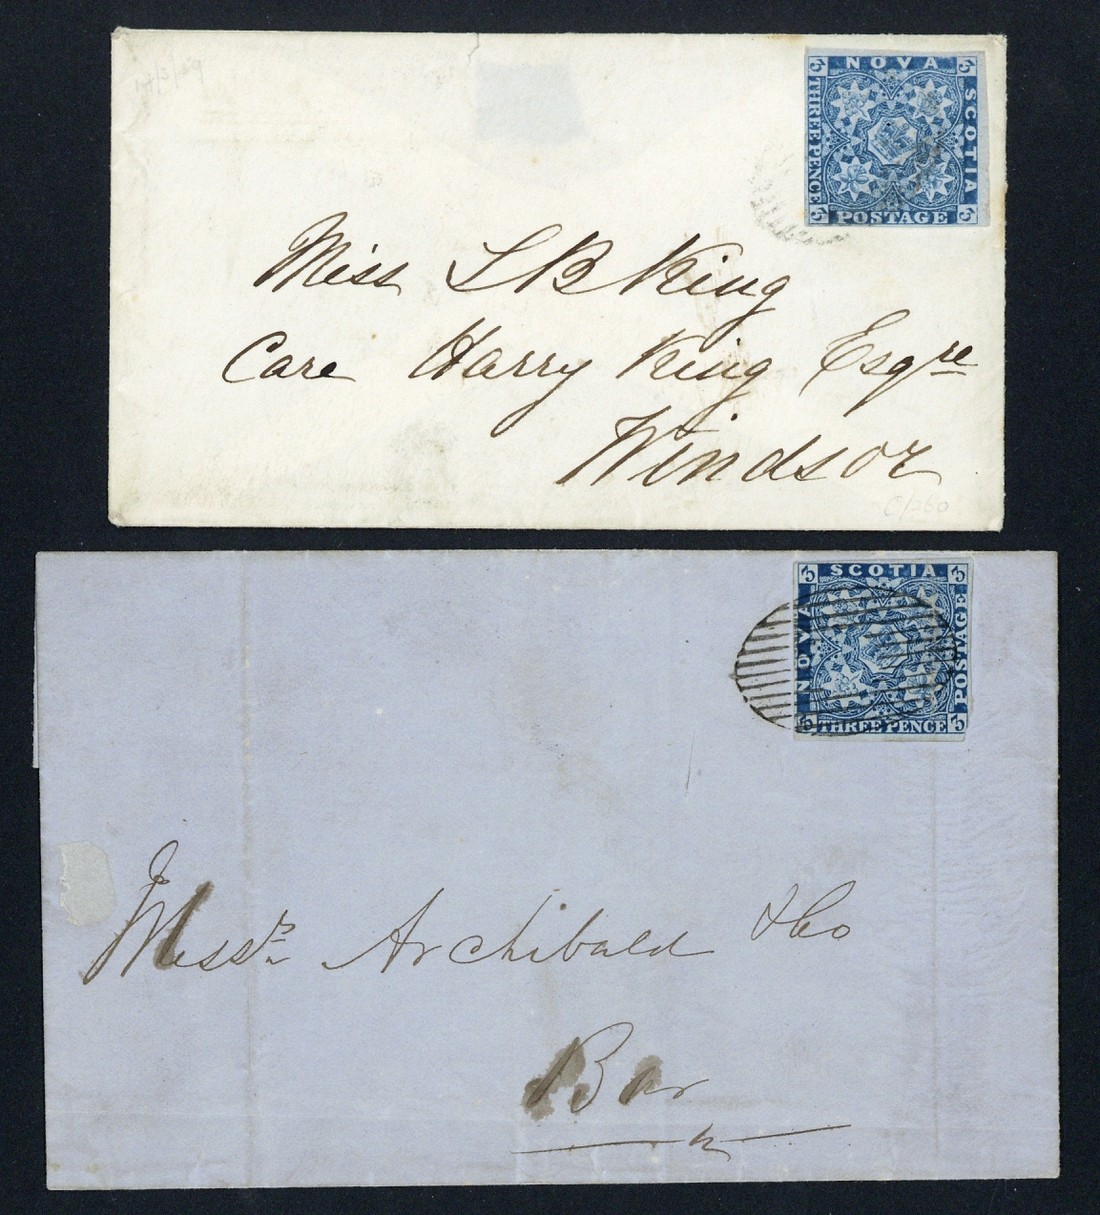 NOVA
SCOTIA
THREE PENCE
POSTAGE
3 3 3 3
Miss S B King
Care Harry King Esqre
Windsor
C/260
SCOTIA
NOVA
POSTAGE
THREE PENCE
3 3 3 3
Messrs Archibald & Co
Bar